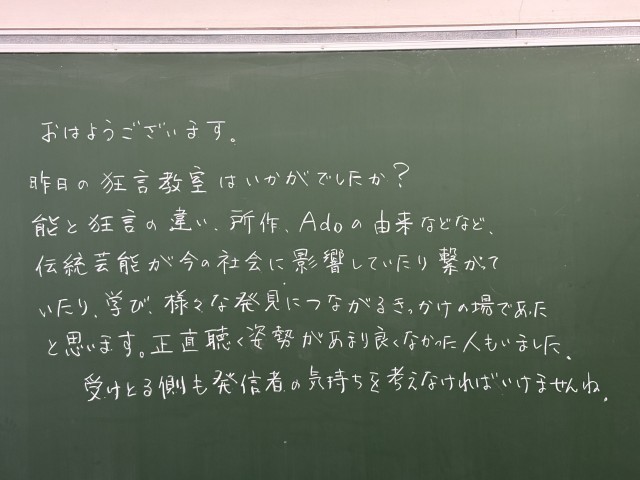 おはようございます。
昨日の狂言教室はいかがでしたか？
能と狂言の違い、所作、Adoの由来などなど、
伝統芸能が今の社会に影響していたり繋がって
いたり、学び、様々な発見につながるきっかけの場であった
と思います。正直聴く姿勢があまり良くなかった人もいました。
受けとる側も発信者の気持ちを考えなければいけませんね。